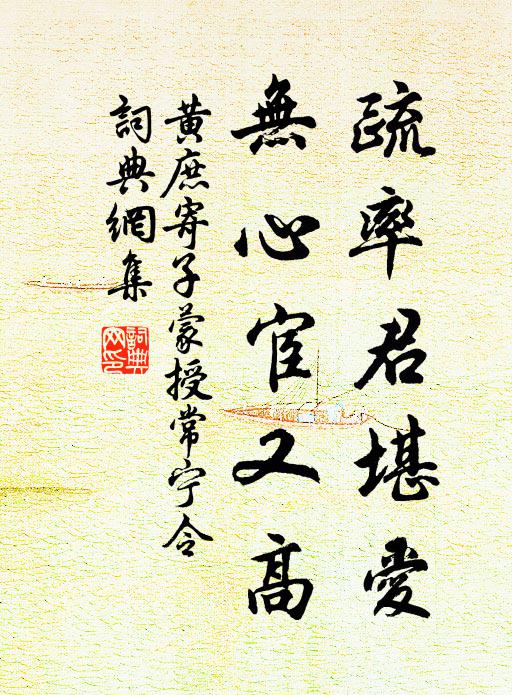 疏率君堪愛
無心宦又高
黄庶寄子蒙授常宁令
詞典網集
詞典
网印